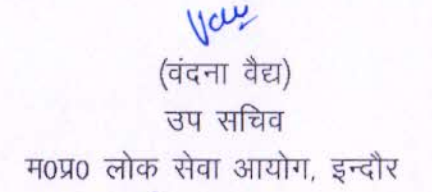 (वंदना वैद्य)
उप सचिव
म0प्र0 लोक सेवा आयोग, इन्दौर